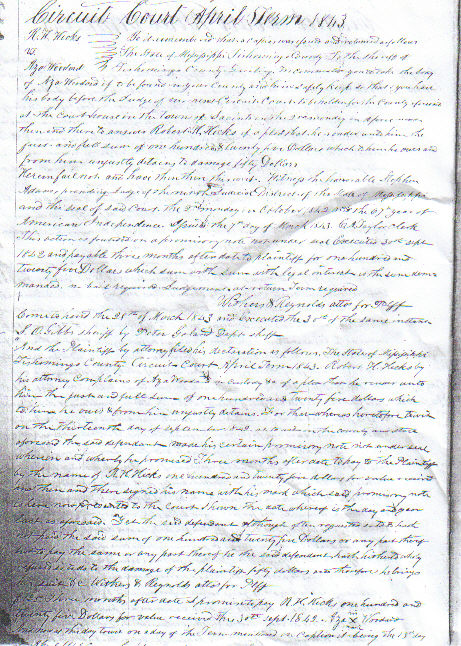 Circuit Court April Term 1843
R. H. Hicks Be it remembered that a Capias was issued and returned as follows
vs. The State of Mississippi Tishomingo County To the Sheriff of
Aza Woodard Tishomingo County Greeting We Command you to take the body
of Aza Woodard if to be found in your County and him safely keep so that you have
his body before the Judge of our next Circuit Court to be holden for the County aforesaid
at the Court house in the town of Jacinto on the 3rd monday in April next
then and there to answer Robert H. Hicks of a plea that he render unto him the
just and full sum of one hundred & twenty five Dollars which to him he owes and
from him unjustly detains to damage fifty Dollars
Herein fail not and have then there this writ. Witness the honorable Stephen
Adams presiding Judge of the Judicial District of the State of Mississippi
and the seal of said Court the 3rd monday in October 1842 & the 67th year of
American Independence Issued the 7th day of March 1843. Taylor Clerk
This action is founded on a promisory note not under seal Executed 30th Sept
1842 and payable three months after date to plaintiff for one hundred and
twenty five Dollars which sum with legal interest is the sum demanded
manded. no bail required Judgement at return Term required
& Reynolds atto for Plff
Came to hand the 28th of March 1843 and executed the 30th of the same instance
J. O. Gibbs Sheriff by Peter Dept Shff
And the Plaintiff by attorney filed his declaration as follows. The State of Mississippi
Tishomingo County Circuit Court April Term 1843. Robert H. Hicks by
his attorney Complains of Aza Woodard in Custody &c of a plea that he render unto
him the just and full sum of one hundred and twenty five dollars which
to him he owes & from him unjustly detains. For that whereas heretofore to wit
on the thirteenth day of september 1842 at to wit in the county and state
aforesaid the said defendant made his certain promisory note not under seal
wherein and whereby he promised Three months after date to pay to the Plaintiff
by the name of R. H. Hicks one hundred and twenty five dollars for value received
and then and there signed his name with his mark which said promisory note
is here now presented to the Court Shown the date whereof is the day and year
last aforesaid. Yet the said defendant although often requested so to do hath
not paid the said sum of one hundred and twenty five Dollars or any part thereof
but to pay the same or any part thereof he the said defendant hath hitherto wholly
refused so to do to the damage of the plaintiff fifty dollars and therefore he brings
suit &c & Reynolds atto for Plff
Three months after date I promise to pay R. H. Hicks one hundred and
twenty five Dollars for value received this 30th Sept. 1842. Aza x Woodard
day to wit on a day of the Term mentioned in Caption it being the 18th day